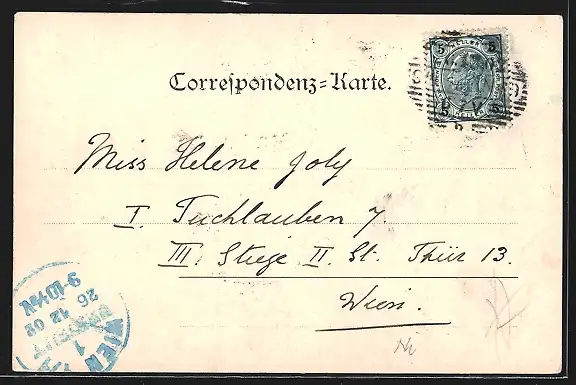 Correſpondenz=Karte.
5 5
5 5
Miss Helene Joly
I. Tuchlauben 7.
III. Stiege II. St. Thür 13.
Wien.
WIEN
1
26 12 02